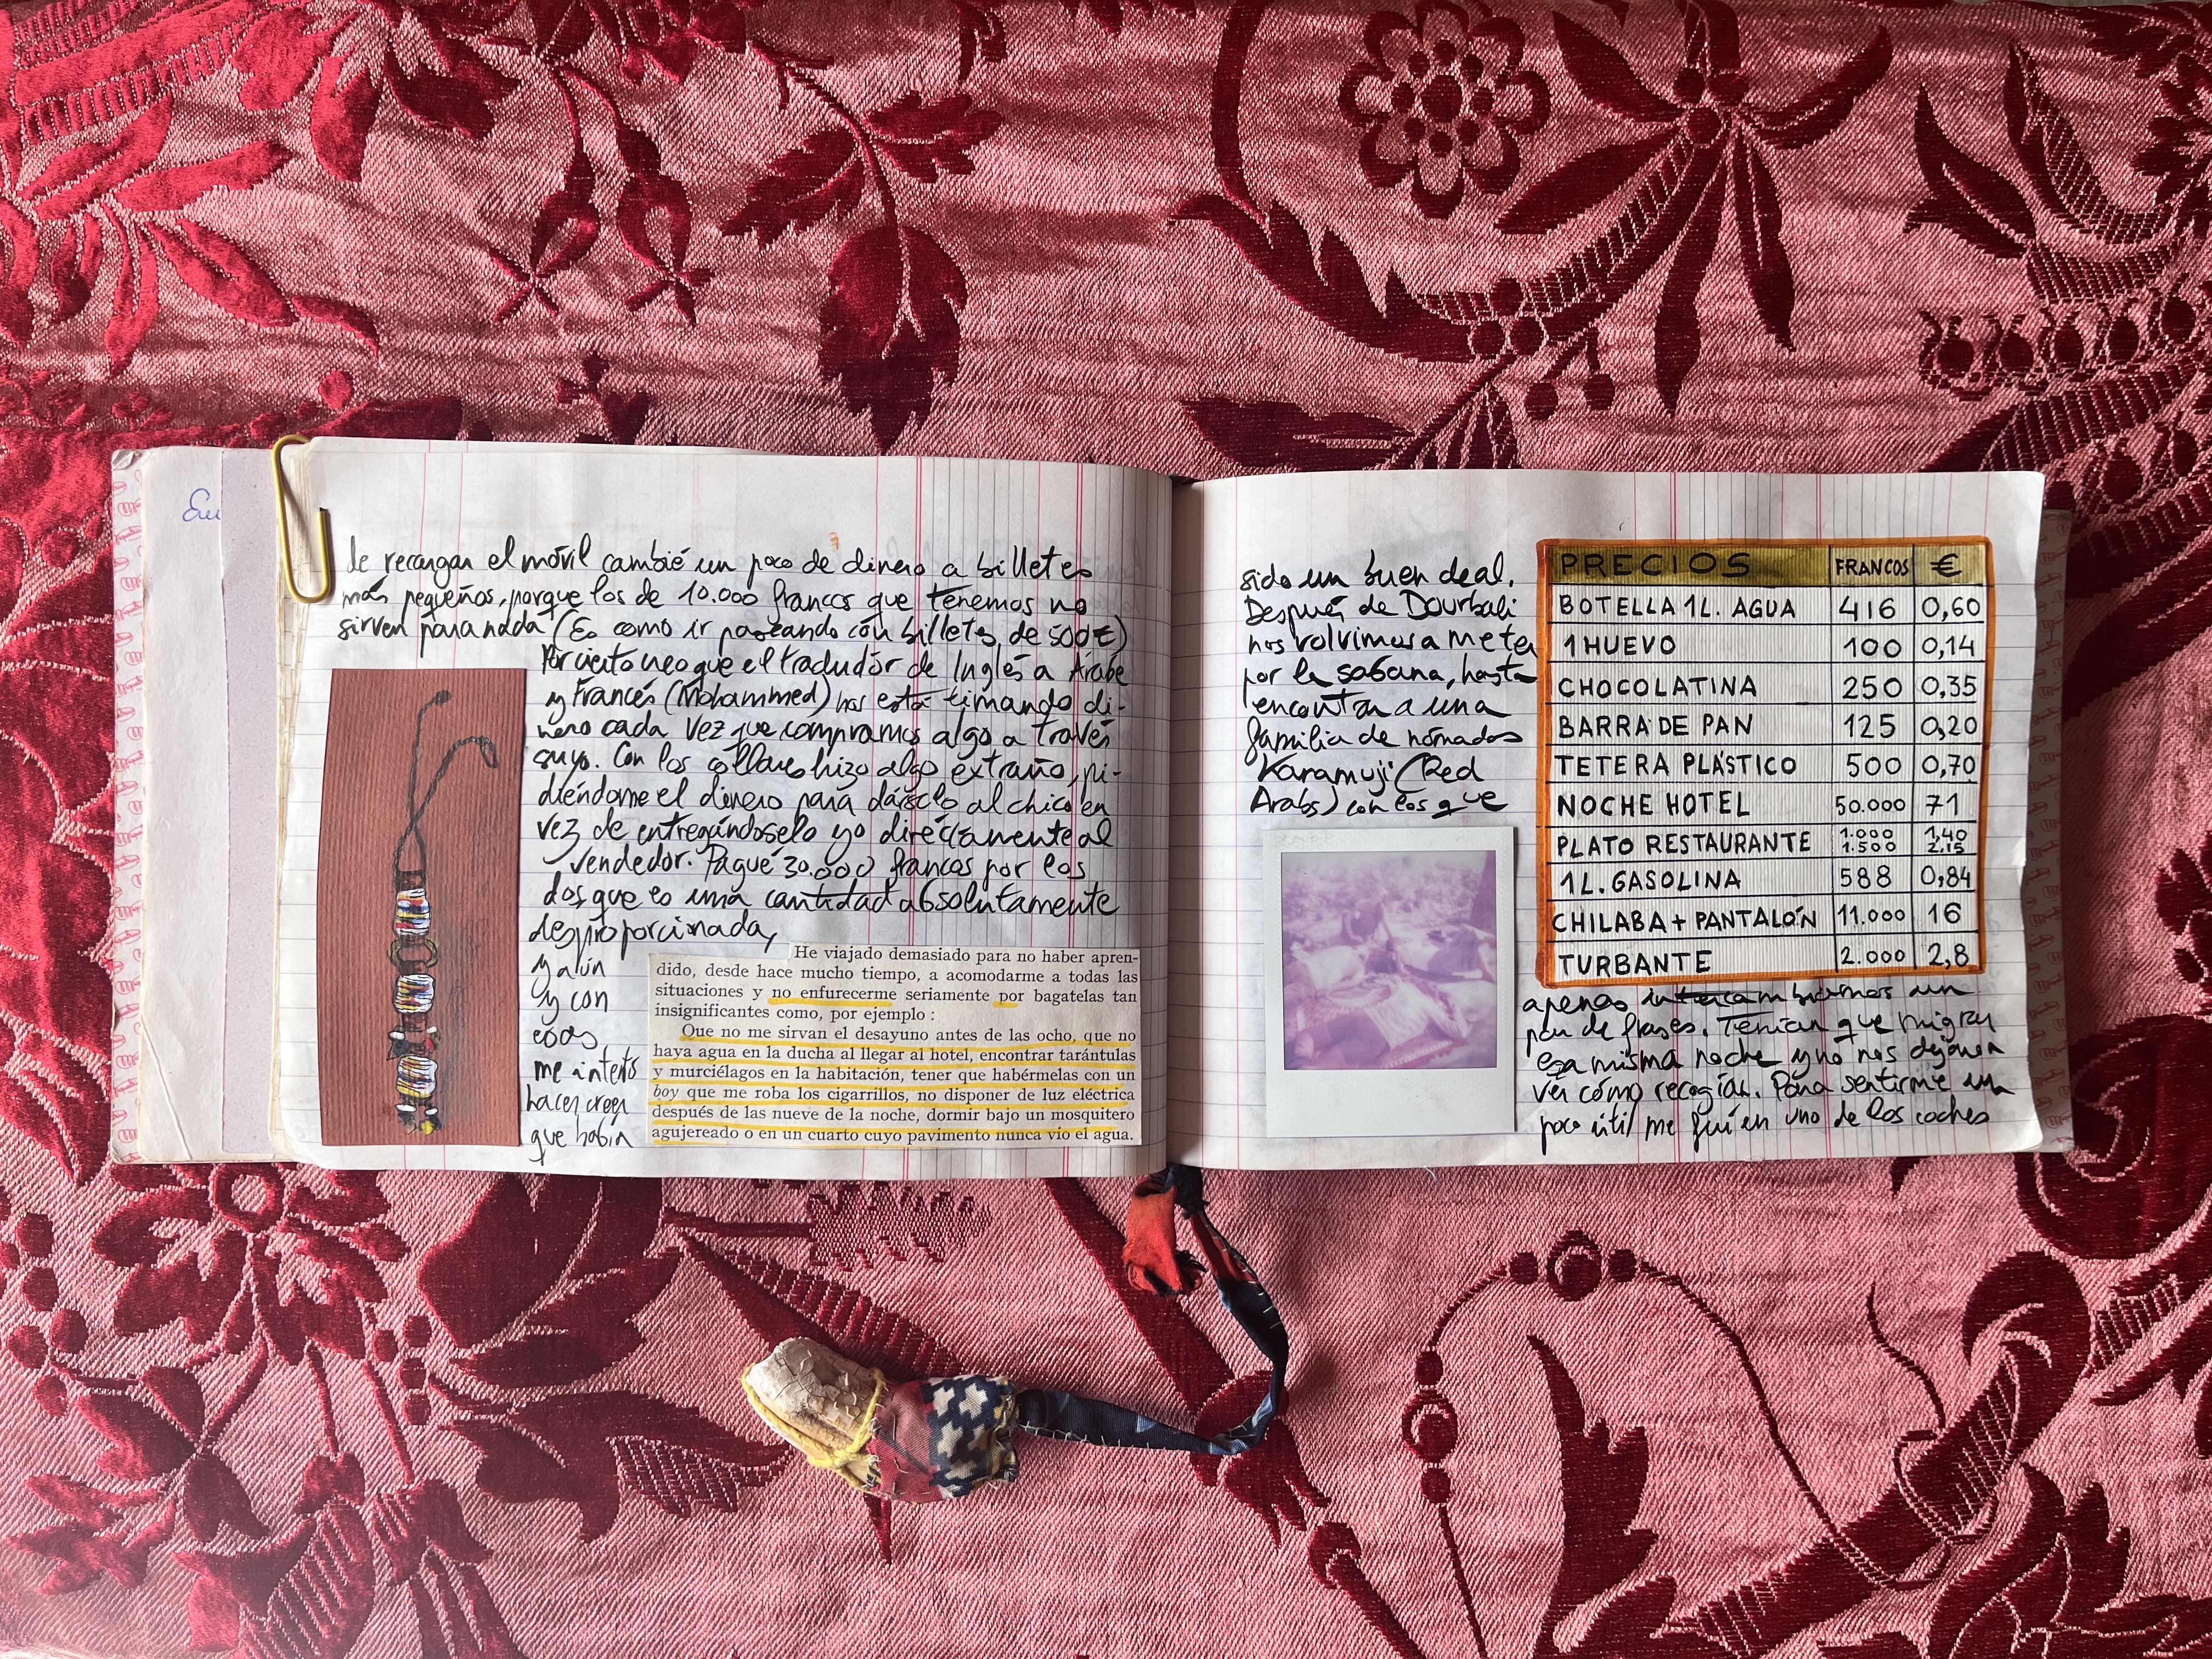 Eu
de recargar el móvil cambié un poco de dinero a billetes
más pequeños, porque los de 10.000 francos que tenemos no
sirven para nada (Es como ir paseando con billetes de 500€)
Por cierto creo que el traductor de Inglés a Árabe
y Francés (Mohammed) nos está timando di-
nero cada vez que compramos algo a través
suyo. Con los collares hizo algo extraño, pi-
diéndome el dinero para dárselo al chico en
vez de entregándoselo yo directamente al
vendedor. Pagué 30.000 francos por los
dos que es una cantidad absolutamente
desproporcinada,
y aún
y con
esas
me intentó
hacer creer
que había
He viajado demasiado para no haber apren-
dido, desde hace mucho tiempo, a acomodarme a todas las
situaciones y no enfurecerme seriamente por bagatelas tan
insignificantes como, por ejemplo :
Que no me sirvan el desayuno antes de las ocho, que no
haya agua en la ducha al llegar al hotel, encontrar tarántulas
y murciélagos en la habitación, tener que habérmelas con un
boy que me roba los cigarrillos, no disponer de luz eléctrica
después de las nueve de la noche, dormir bajo un mosquitero
agujereado o en un cuarto cuyo pavimento nunca vio el agua.
sido un buen deal.
Después de Dourbali
nos volvimos a meter
por la sabana, hasta
encontrar a una
familia de nómadas
Karamuji (Red
Arabs) con los que
PRECIOS FRANCOS €
BOTELLA 1L. AGUA 416 0,60
1 HUEVO 100 0,14
CHOCOLATINA 250 0,35
BARRA DE PAN 125 0,20
TETERA PLÁSTICO 500 0,70
NOCHE HOTEL 50.000 71
PLATO RESTAURANTE 1.000 1.500 1,40 2,15
1 L. GASOLINA 588 0,84
CHILABA + PANTALÓN 11.000 16
TURBANTE 2.000 2,8
apenas intercambiamos un
par de frases. Tenían que migrar
esa misma noche y no nos dejaron
ver cómo recogían. Para sentirme un
poco útil me fui en uno de los coches